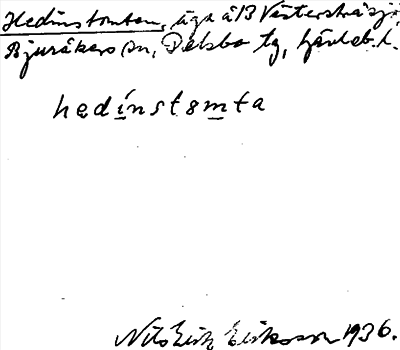 Hedinstomten, äga å 13 Västerstråsjö,
Bjuråkers sn, Delsbo tg, Gävleb. l.
hedinstomta
Nils Erik Eriksson 1936.